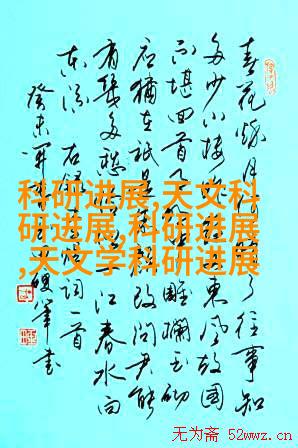 春花秋月何时了往事知
多少小楼昨夜又东风故国
不堪回首月明中雕栏玉砌
应犹在祇是朱颜改问君能
有几多愁恰似一江春水向
东流 右录李煜词一首
癸未
军书
科研进展,天文科
研进展,科研进展
,天文学科研进展
无为斋 52wwz.cn